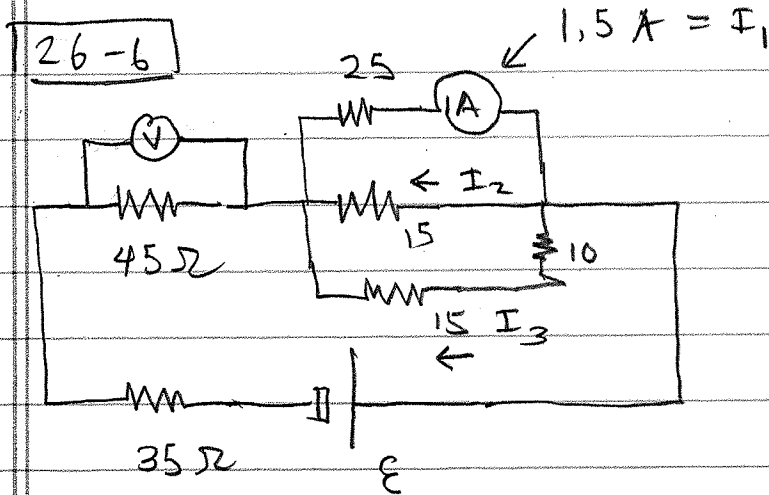 26-6
1,5 A = I₁
25
A
V
I₂
15
45Ω
10
15 I₃
35Ω
ε